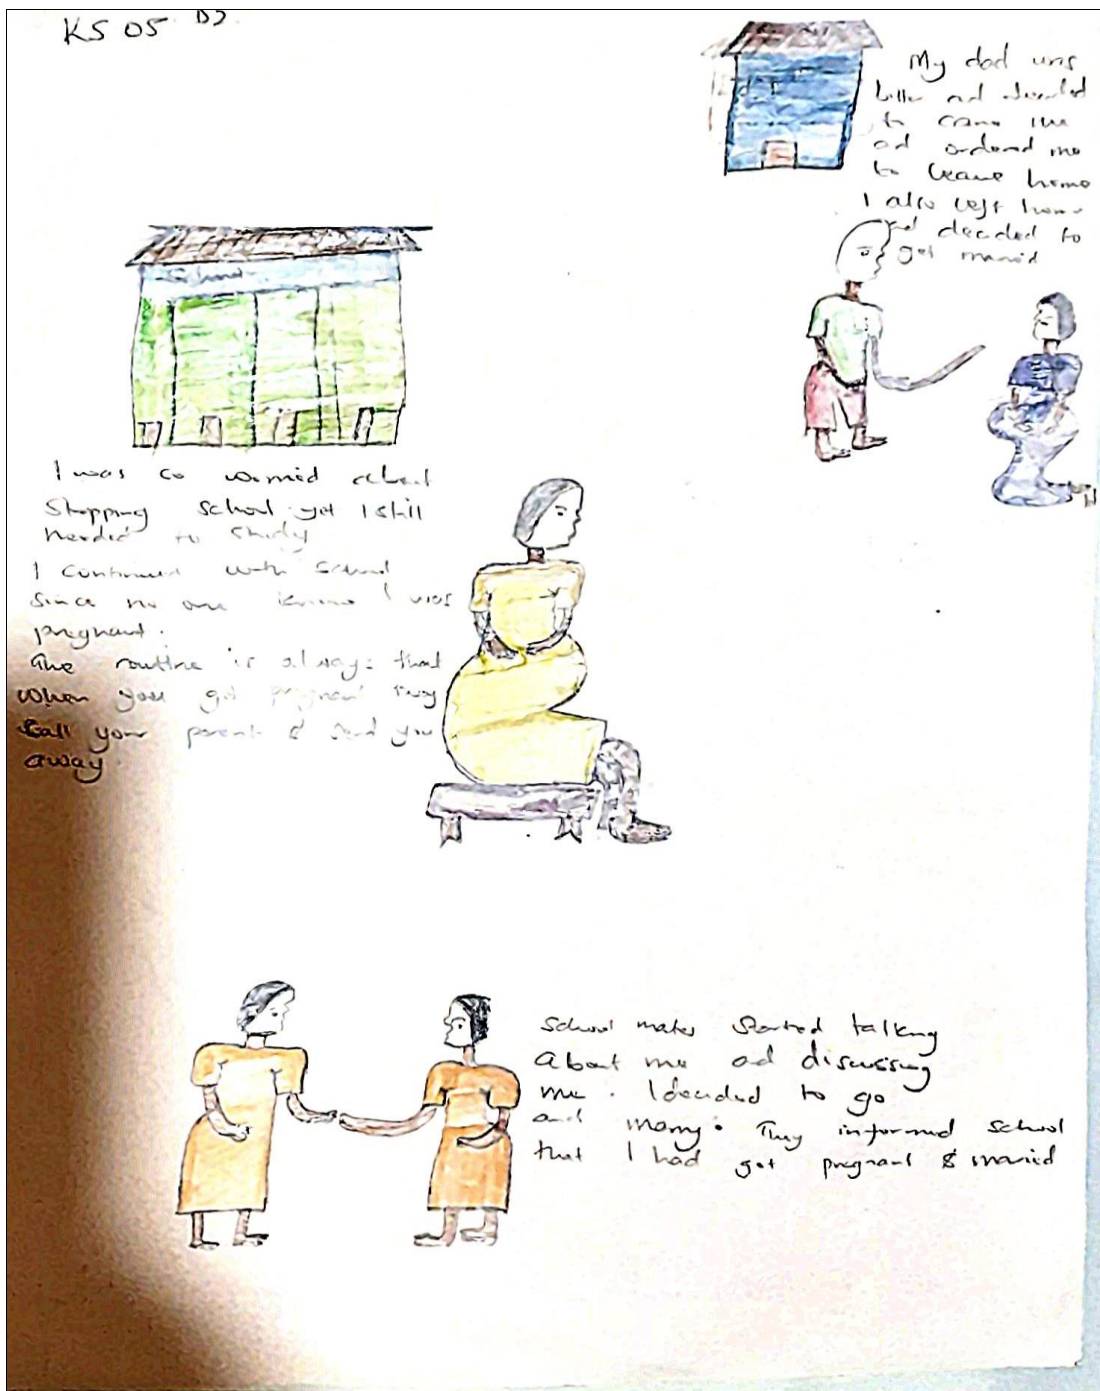 KS 05 D2
My dad was
bitter and decided
to cane me
ad ordered me
to leave home
I also left home
and decided to
get maried
School
I was so worried about
Stopping school yet I still
needed to study
I continued with school
since no one knew I was
pregnant.
The routine is always that
when you get pregnant they
call your parents & send you
away.
School mates started talking
About me ad discussing
me. I decided to go
and marry. They informed school
that I had got pregnant & maried